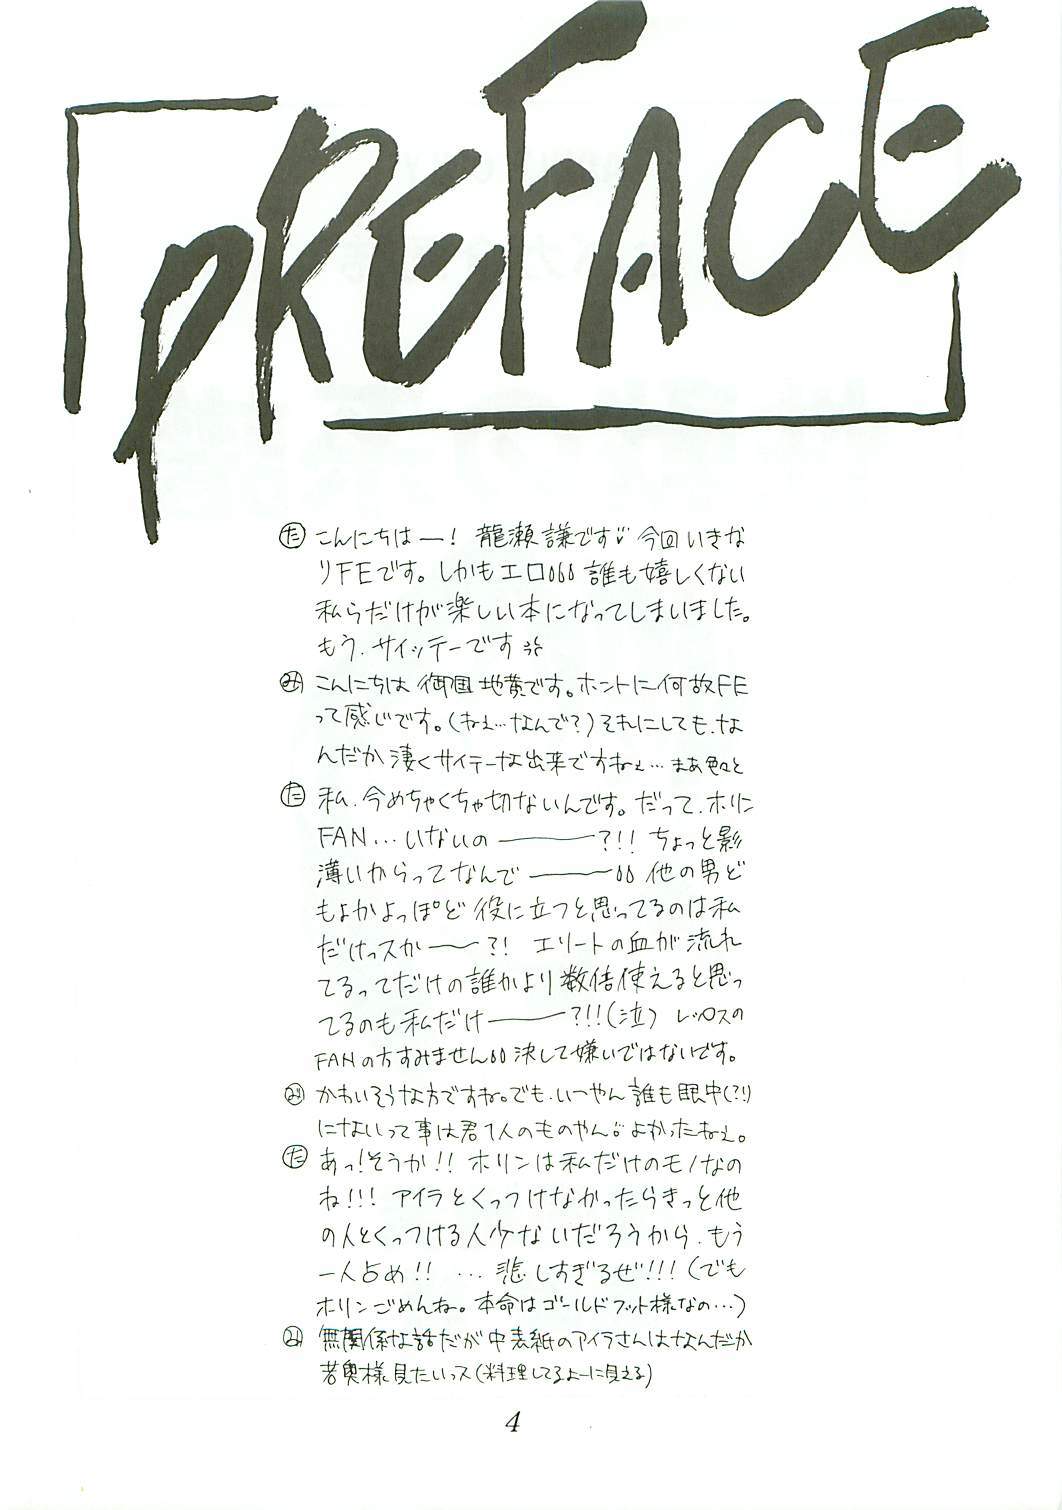 PREFACE
た こんにちはー! 龍瀬謙です 今回いきな
りFEです。しかもエロ 誰も嬉しくない
私らだけが楽しい本になってしまいました。
もう、サイッテーです
み こんにちは 御国地黄です。ホントに何故FE
って感じです。(ねぇ…なんで?)それにしても、な
んだか凄くサイテーな出来ですねぇ… まあ色々と
た 私、今めちゃくちゃ切ないんです。だって、ホリン
FAN…いないの———?!! ちょっと影
薄いからってなんで——— 他の男ど
もよかよっぽど役に立つと思ってるのは私
だけっスか——?! エリートの血が流れ
てるってだけの誰かより数倍使えると思っ
てるのも私だけ———?!!(泣) レックスの
FANの方すみません 決して嫌いではないです。
み かわいそうな方ですね。でも、いつやん誰も眼中(?!)
にないって事は君1人のものやん よかったねぇ。
た あっ!そうか!! ホリンは私だけのモノなの
ね!!! アイラとくっつけなかったらきっと他
の人とくっつける人少ないだろうから、もう
一人占め!! …悲しすぎるぜ!!!(でも
ホリンごめんね。本命はゴールドフット様なの…)
み 無関係な話だが中表紙のアイラさんはなんだか
若奥様見たいっス(料理してるよーに見える)
4